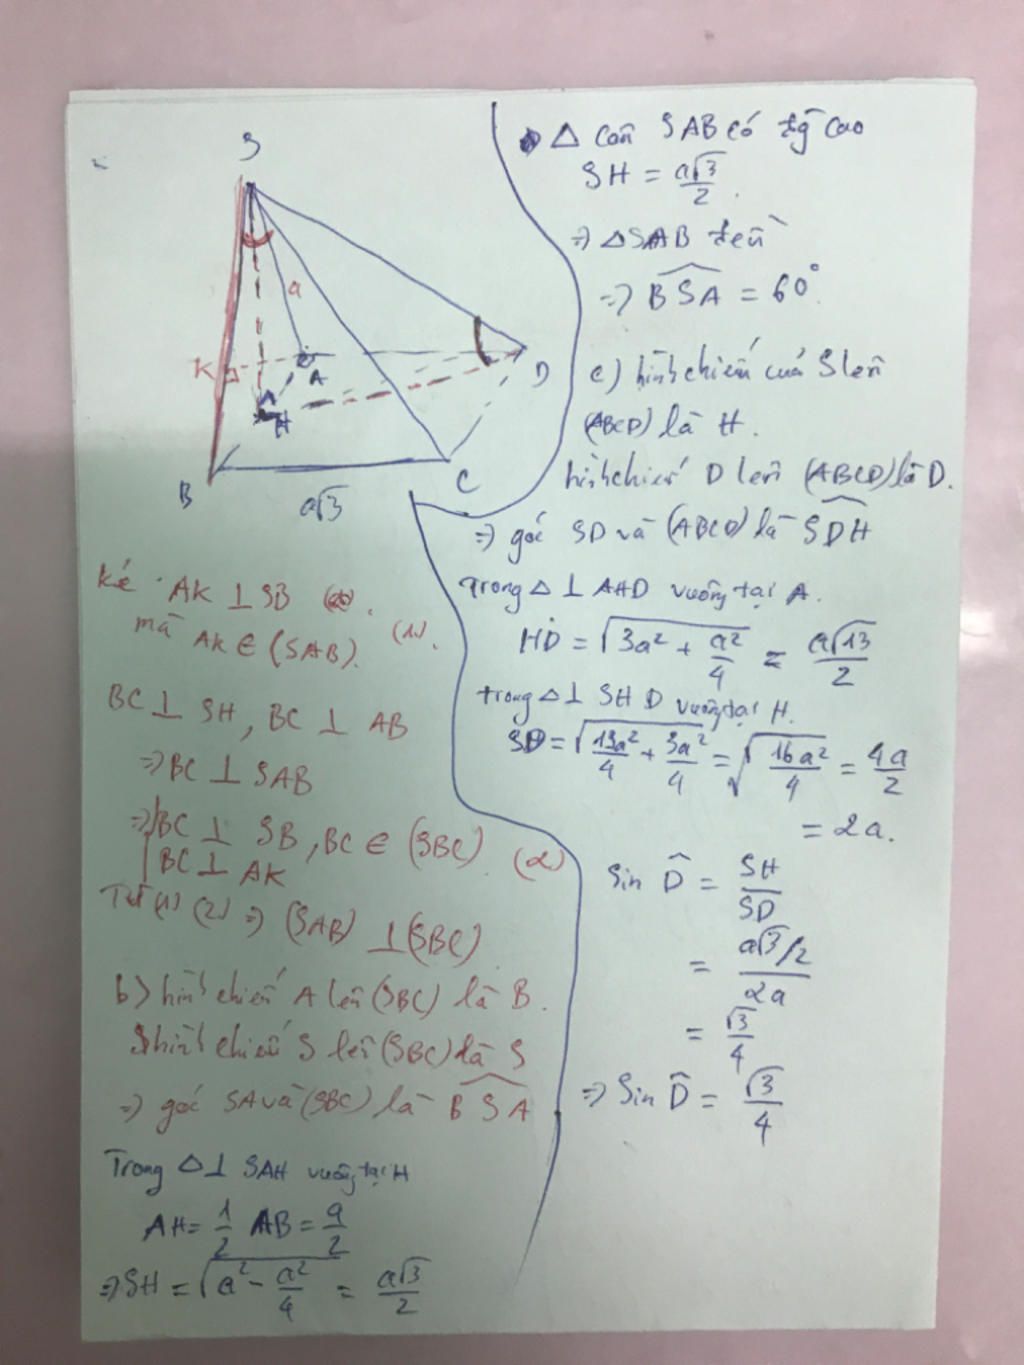 S
a
K
A
H
D
B
C
a√3
Kẻ AK ⊥ SB
mà AK ∈ (SAB). (1).
BC ⊥ SH, BC ⊥ AB
⇒ BC ⊥ SAB
⇒ BC ⊥ SB, BC ∈ (SBC) (2)
BC ⊥ AK
Từ (1) (2) ⇒ (SAB) ⊥ (SBC)
b) hình chiếu A lên (SBC) là B.
hình chiếu S lên (SBC) là S
⇒ góc SA và (SBC) là \widehat{BSA}
Trong Δ⊥ SAH vuông tại H
AH = 1/2 AB = a/2
⇒ SH = √(a² - a²/4) = a√3/2
Δ cân SAB có đg cao
SH = a√3/2.
⇒ ΔSAB đều
⇒ \widehat{BSA} = 60°.
c) hình chiếu của S lên
(ABCD) là H.
hình chiếu D lên (ABCD) là D.
⇒ góc SD và (ABCD) là \widehat{SDH}
Trong Δ⊥ AHD vuông tại A.
HD = √(3a² + a²/4) = a√13/2
trong Δ⊥ SHD vuông tại H.
SD = √(13a²/4 + 3a²/4) = √(16a²/4) = 4a/2
= 2a.
Sin \widehat{D} = SH/SD
= (a√3/2)/2a
= √3/4
⇒ Sin \widehat{D} = √3/4